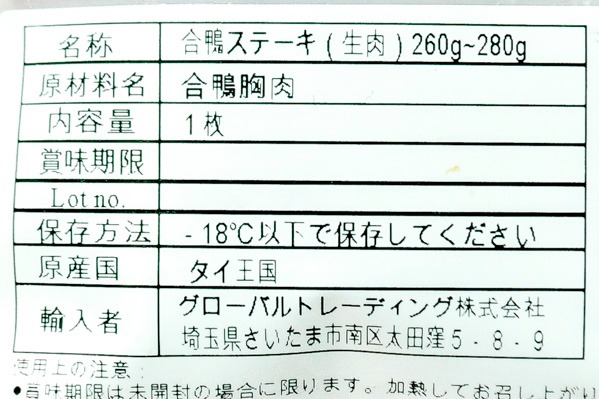 名称 合鴨ステーキ(生肉)260g~280g
原材料名 合鴨胸肉
内容量 1枚
賞味期限
Lot no.
保存方法 -18℃以下で保存してください
原産国 タイ王国
輸入者 グローバルトレーディング株式会社
埼玉県さいたま市南区太田窪5-8-9
使用上の注意:
•賞味期限は未開封の場合に限ります。加熱してお召し上がり